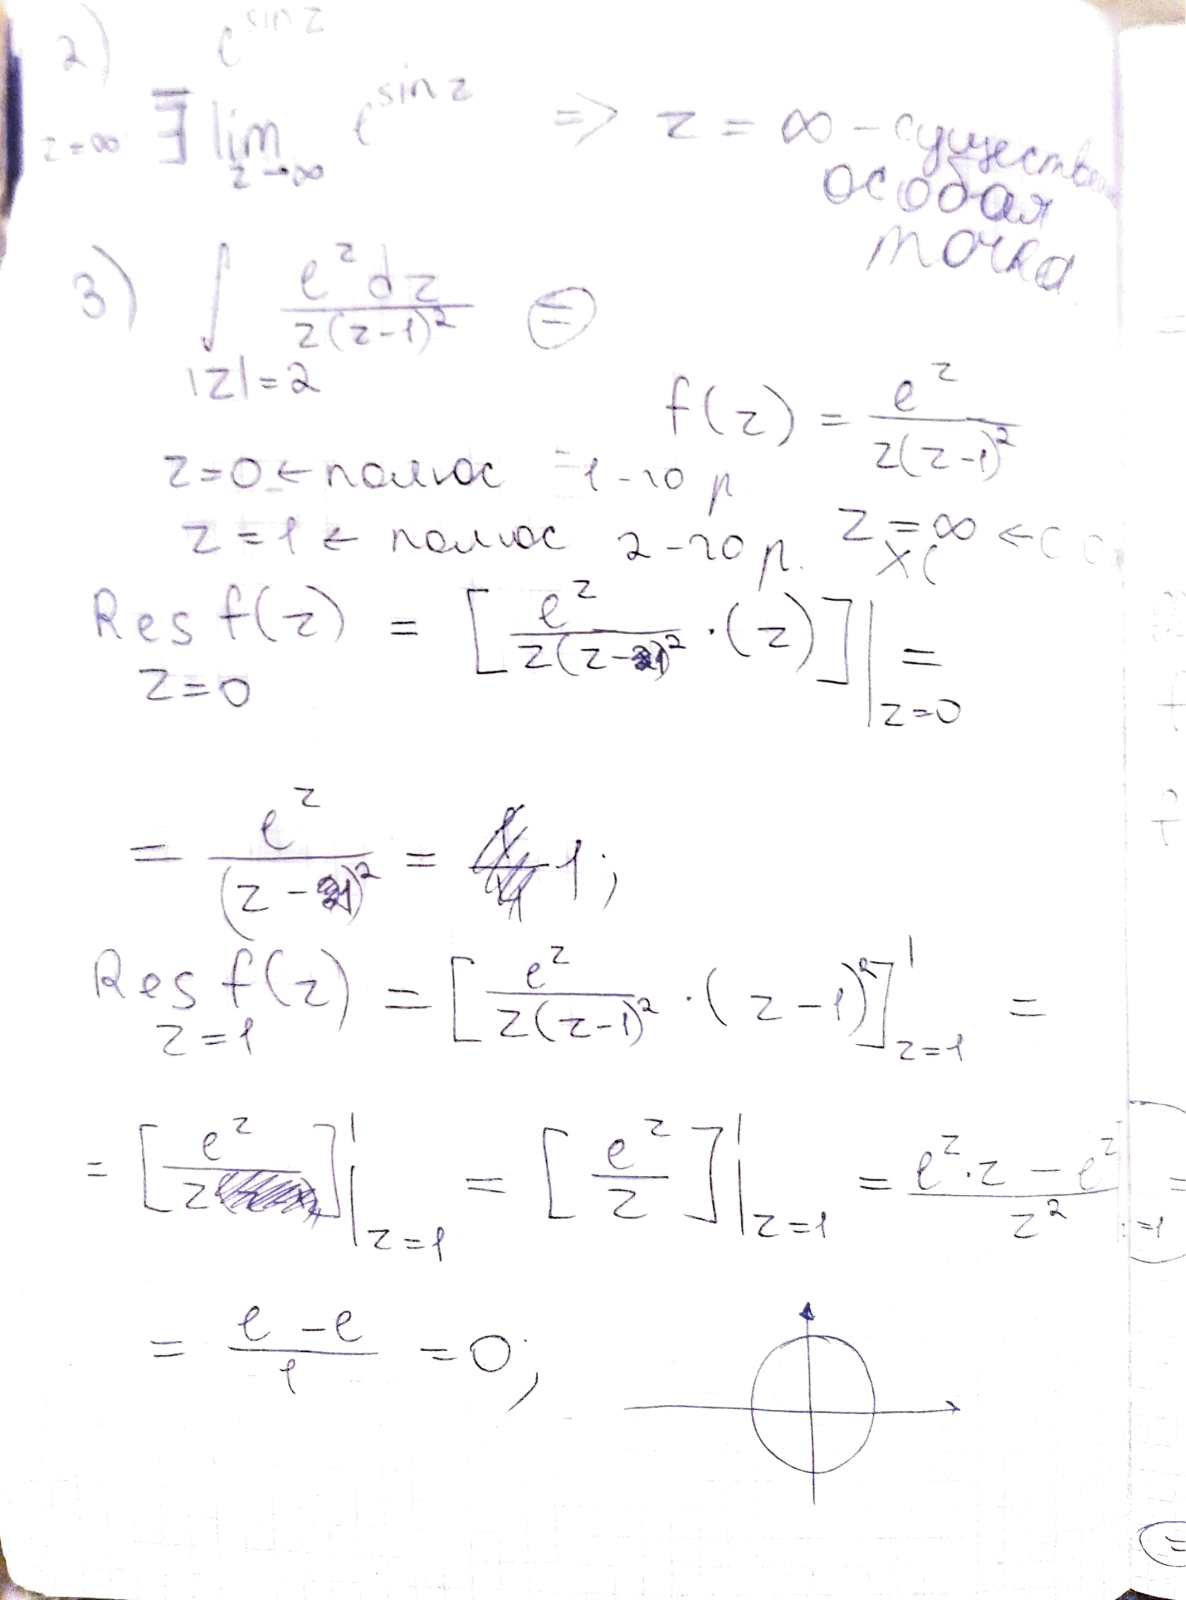 2) e^{sin z}
z=∞ ∃̅ lim_{z→∞} e^{sin z} => z = ∞ – существ
особая
точка
3) ∫_{|z|=2} \frac{e^z dz}{z(z-1)^2} (=)
f(z) = \frac{e^z}{z(z-1)^2}
z=0 ← полюс 1-го р
z=1 ← полюс 2-го р. z=∞ ←
Res_{z=0} f(z) = [\frac{e^z}{z(z-1)^2} · (z)]|_{z=0} =
= \frac{e^z}{(z-1)^2} = 1;
Res_{z=1} f(z) = [\frac{e^z}{z(z-1)^2} · (z-1)^2]'_{z=1} =
= [\frac{e^z}{z}]'|_{z=1} = [\frac{e^z}{z}]'|_{z=1} = \frac{e^z·z - e^z}{z^2}|_{z=1} =
= \frac{e-e}{1} = 0;